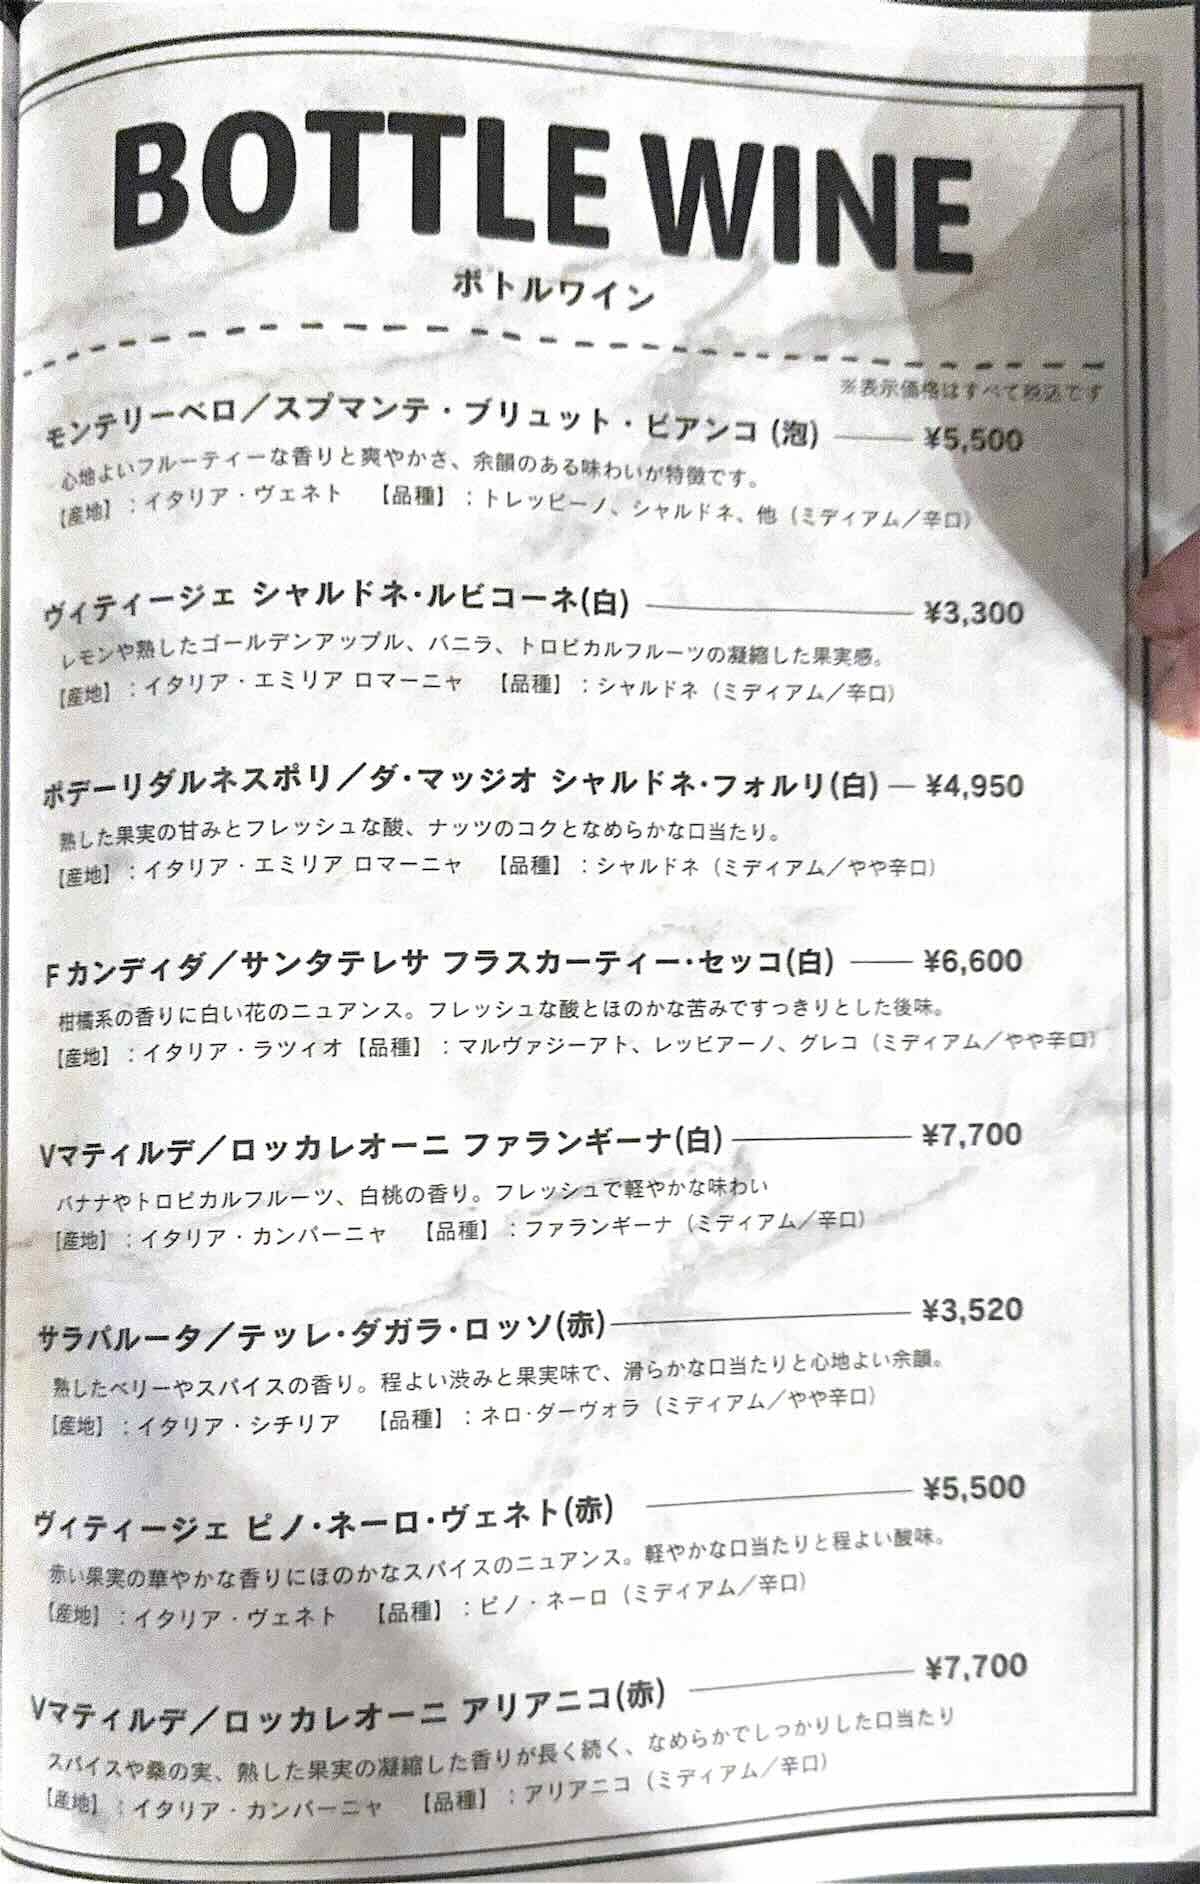 BOTTLE WINE
ボトルワイン
※表示価格はすべて税込です
モンテリーベロ／スプマンテ・ブリュット・ビアンコ (泡) ¥5,500
心地よいフルーティーな香りと爽やかさ、余韻のある味わいが特徴です。
【産地】：イタリア・ヴェネト 【品種】：トレッビーノ、シャルドネ、他（ミディアム／辛口）
ヴィティージェ シャルドネ・ルビコーネ(白) ¥3,300
レモンや熟したゴールデンアップル、バニラ、トロピカルフルーツの凝縮した果実感。
【産地】：イタリア・エミリア ロマーニャ 【品種】：シャルドネ（ミディアム／辛口）
ポデーリダルネスポリ／ダ・マッジオ シャルドネ・フォルリ(白) ¥4,950
熟した果実の甘みとフレッシュな酸、ナッツのコクとなめらかな口当たり。
【産地】：イタリア・エミリア ロマーニャ 【品種】：シャルドネ（ミディアム／やや辛口）
Fカンディダ／サンタテレサ フラスカーティー・セッコ(白) ¥6,600
柑橘系の香りに白い花のニュアンス。フレッシュな酸とほのかな苦みですっきりとした後味。
【産地】：イタリア・ラツィオ【品種】：マルヴァジーアト、レッビアーノ、グレコ（ミディアム／やや辛口）
Vマティルデ／ロッカレオーニ ファランギーナ(白) ¥7,700
バナナやトロピカルフルーツ、白桃の香り。フレッシュで軽やかな味わい
【産地】：イタリア・カンパーニャ 【品種】：ファランギーナ（ミディアム／辛口）
サラパルータ／テッレ・ダガラ・ロッソ(赤) ¥3,520
熟したベリーやスパイスの香り。程よい渋みと果実味で、滑らかな口当たりと心地よい余韻。
【産地】：イタリア・シチリア 【品種】：ネロ・ダーヴォラ（ミディアム／やや辛口）
ヴィティージェ ピノ・ネーロ・ヴェネト(赤) ¥5,500
赤い果実の華やかな香りにほのかなスパイスのニュアンス。軽やかな口当たりと程よい酸味。
【産地】：イタリア・ヴェネト 【品種】：ピノ・ネーロ（ミディアム／辛口）
Vマティルデ／ロッカレオーニ アリアニコ(赤) ¥7,700
スパイスや桑の実、熟した果実の凝縮した香りが長く続く、なめらかでしっかりした口当たり
【産地】：イタリア・カンパーニャ 【品種】：アリアニコ（ミディアム／辛口）